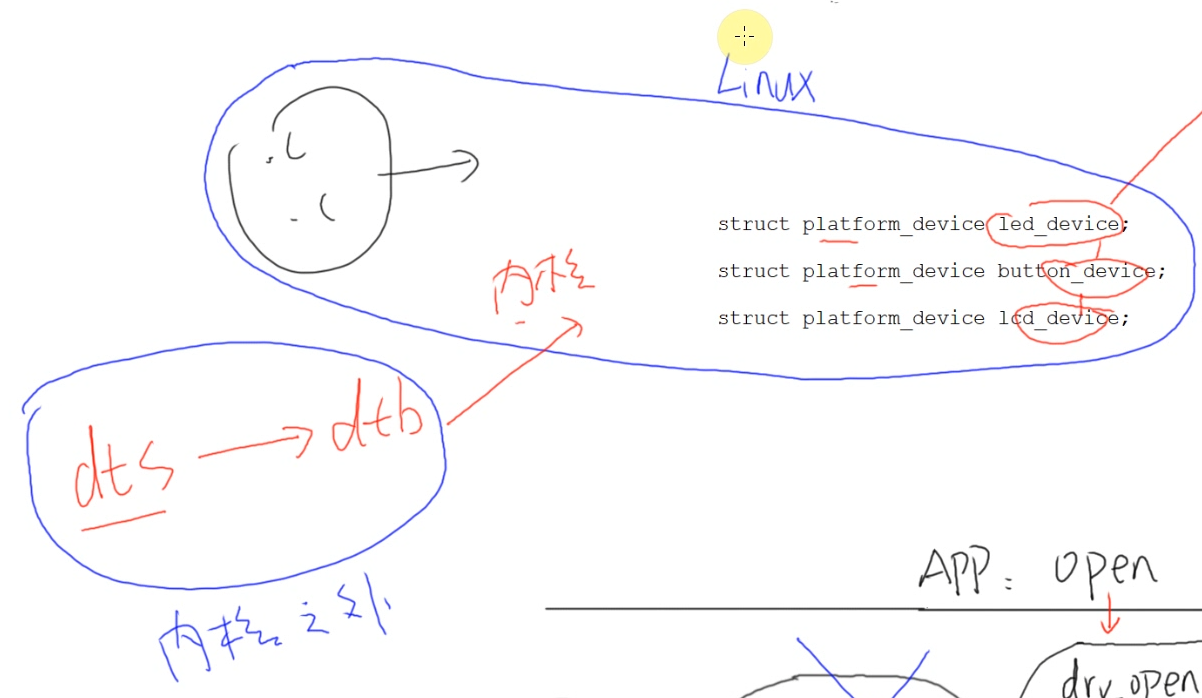 Linux
.c
.c
struct platform_device led_device;
struct platform_device button_device;
struct platform_device lcd_device;
内核
dts → dtb
内核之外
APP: open
drv_open